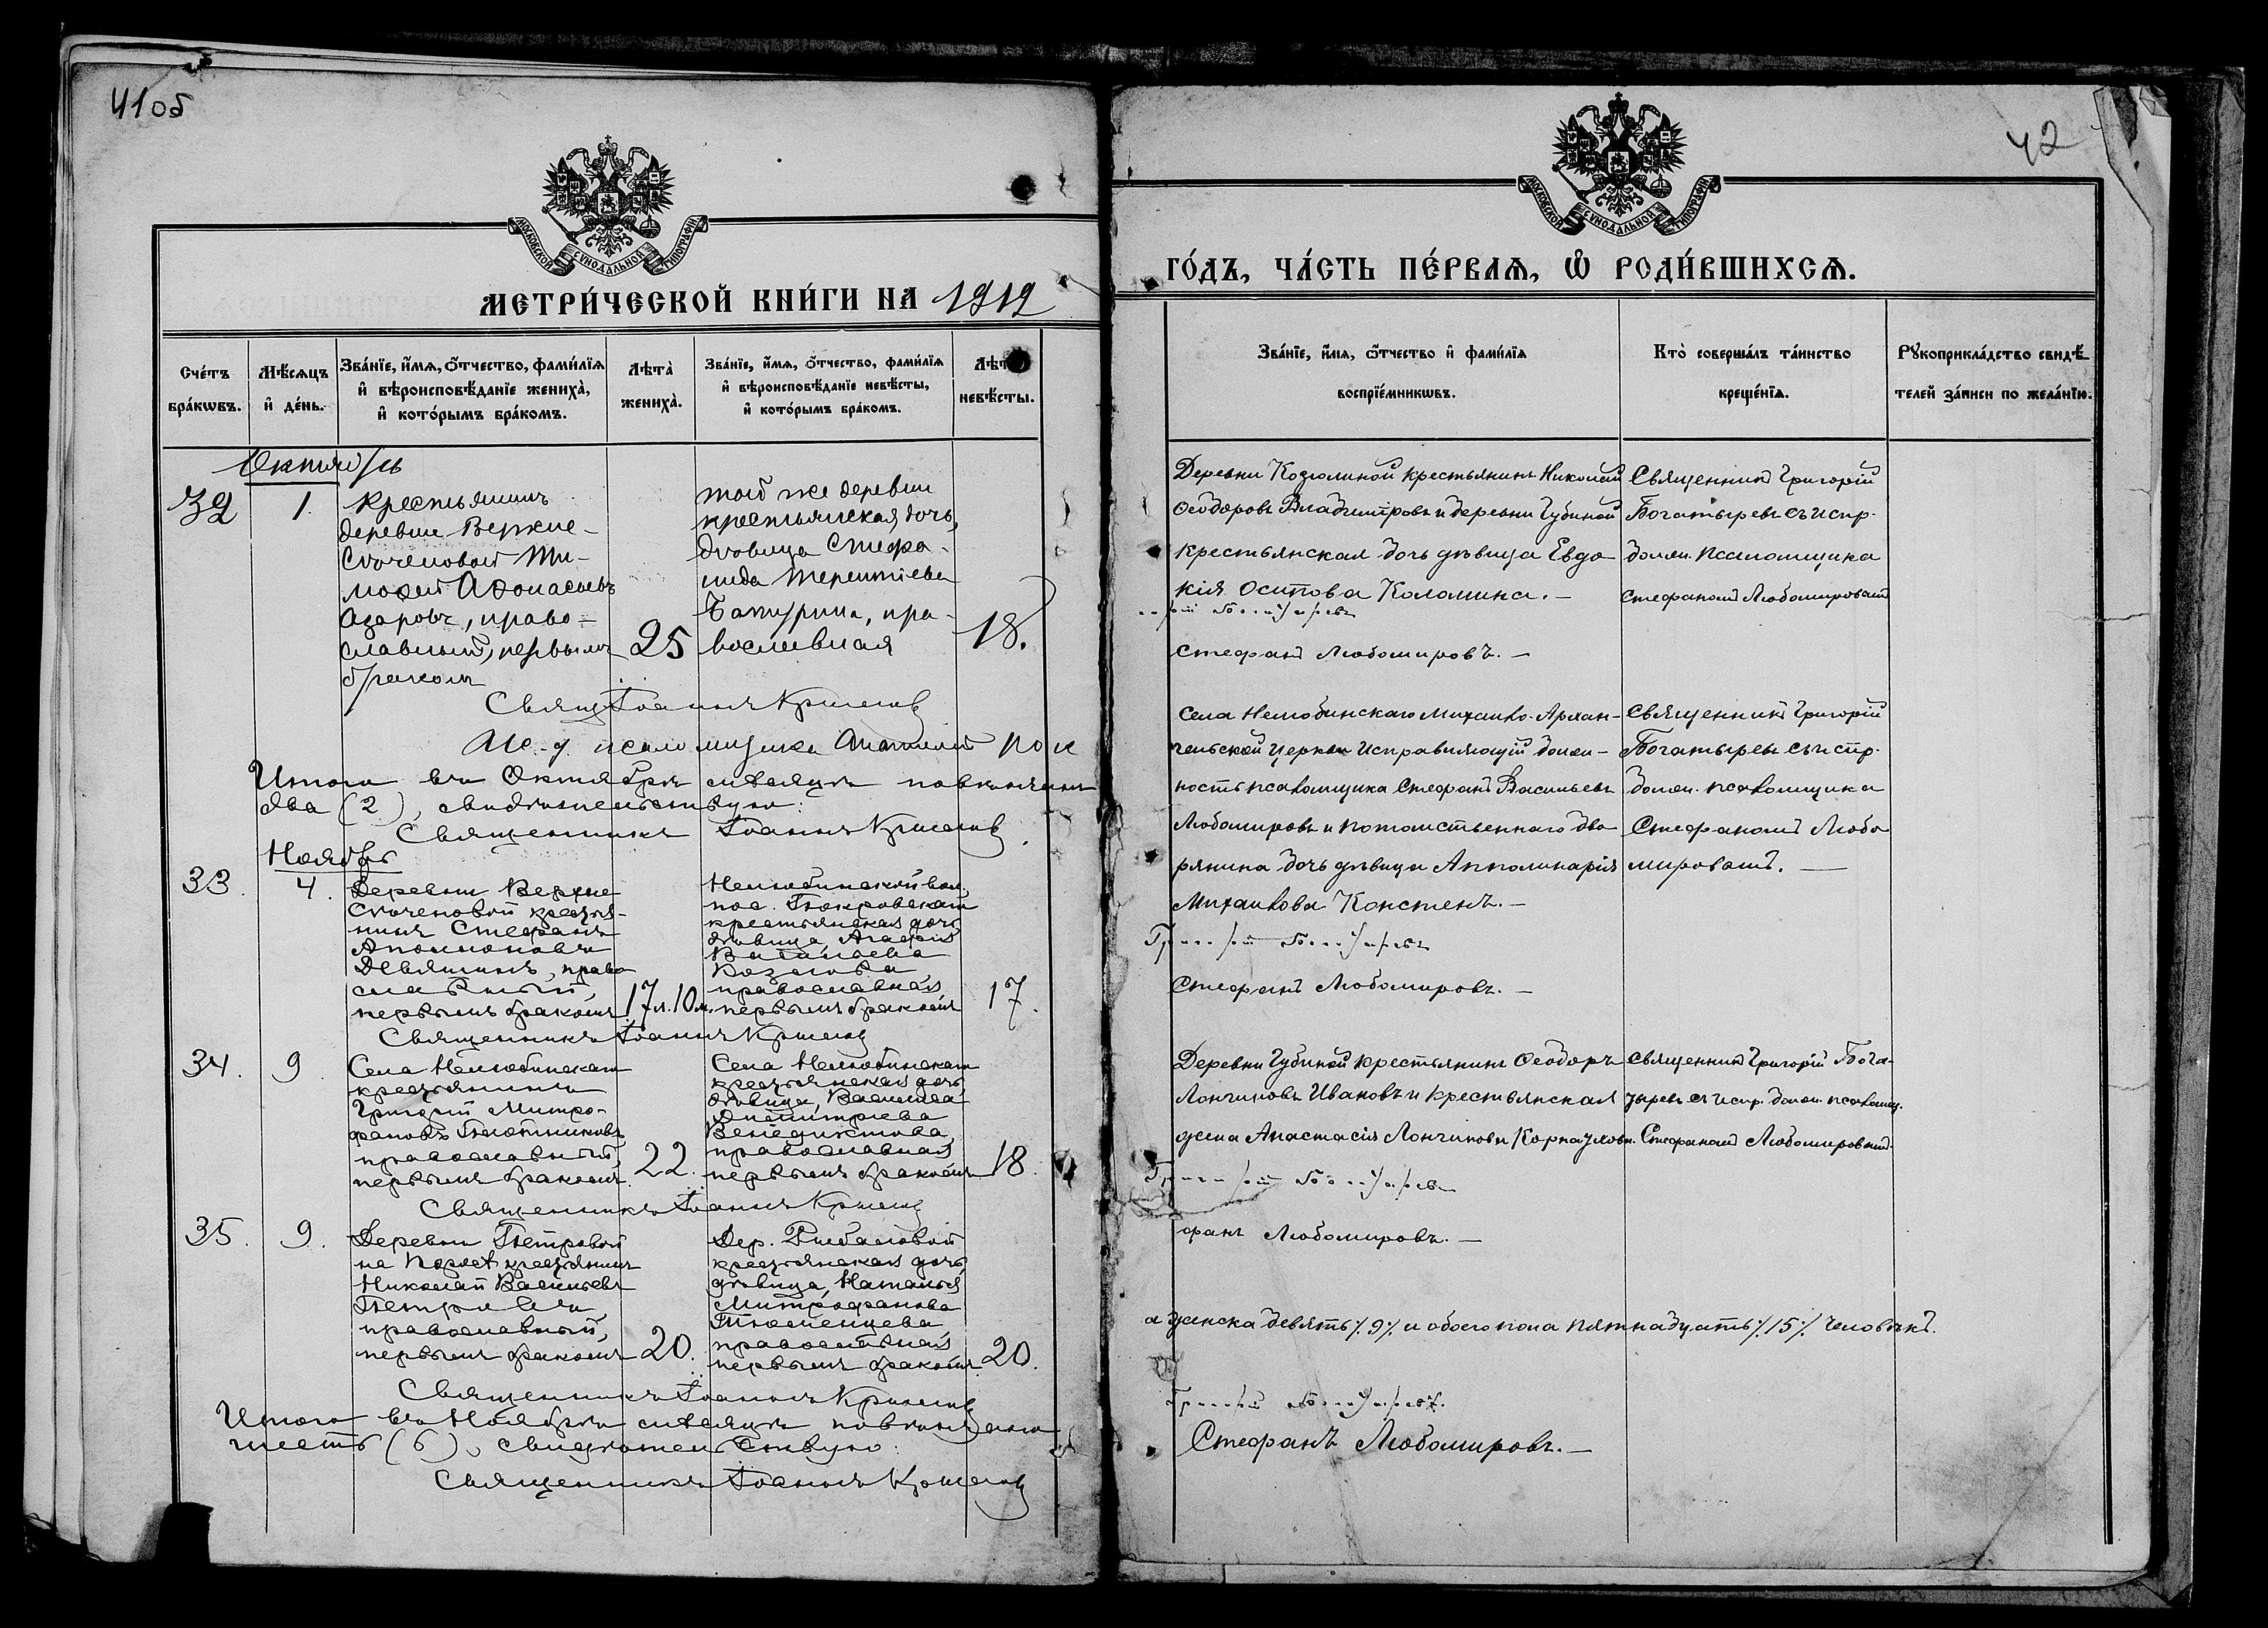 41 об
МОСКОВСКОЙ СѴНОДАЛЬНОЙ ТИПОГРАФИ.
МЕТРИ́ЧЕСКОЙ КНИ́ГИ НА 1912
Сче́тъ бра́кωвъ.
Мѣ́сѧцъ и҆ де́нь.
Зва́нїе, и҆́мѧ, ѻ҆́тчество, фами́лїѧ и҆ вѣроисповѣ́данїе жениха̀, и҆ кото́рымъ бра́комъ.
Лѣта̀ жениха̀.
Зва́нїе, и҆́мѧ, ѻ҆́тчество, фами́лїѧ и҆ вѣроисповѣ́данїе невѣ́сты, и҆ кото́рымъ бра́комъ.
невѣ́сты.
Октябрь
32
1.
Крестьянинъ
деревни Верхне-
Сѣченовой Ти-
мофей Афонасьевъ
Азаровъ, право-
славный, первымъ
бракомъ
25
той же деревни
крестьянская дочь,
дѣвица Стефа-
нида Терентіева
Батурина, пра-
вославная
18.
Священ. Іоаннъ
И. д. псаломщика
Итого въ Октябрѣ мѣсяцѣ повѣнчано
два (2), свидѣтельствую:
Священникъ Іоаннъ
Ноябрь
33.
4.
Деревни Верхне
Сѣченовой крестья-
нинъ Стефанъ
Аполлоновъ
Девяшинъ, право
славный,
первымъ бракомъ
17 л. 10 м.
Нелюбинской вол.
пос. Покровскаго
крестьянская дочь
дѣвица, Агафія
Васильева
Козлова
православная
первымъ бракомъ
17.
Священникъ Іоаннъ
34.
9.
Села Нелюбинскаго
крестьянинъ
Григорій Митро-
фановъ Плотниковъ
православный,
первымъ бракомъ.
22.
Села Нелюбинскаго
крестьянская дочь
дѣвица, Васса
Димитріева
Венедиктова,
православная
первымъ бракомъ
18.
Священникъ Іоаннъ
35.
9.
Деревни Петровой
крестьянинъ
Николай Васильевъ
Петровъ,
православный,
первымъ бракомъ
20.
Дер. Рыбаловой
крестьянская дочь
дѣвица, Наталья
Митрофанова
Тюменцева
православная
первымъ бракомъ
20.
Священникъ Іоаннъ
Итого въ Ноябрѣ мѣсяцѣ повѣнчано
шесть (6), свидѣтельствую:
Священникъ Іоаннъ
42
МОСКОВСКОЙ СѴНОДАЛЬНОЙ ТИПОГРАФИ.
ГО́ДЪ, ЧА́СТЬ ПЕ́РВАѦ, Ѽ РОДИ́ВШИХСѦ.
Зва́нїе, и҆́мѧ, ѻ҆́тчество и҆ фами́лїѧ
воспрїе́мникωвъ.
Кто̀ соверша́лъ та́инство
креще́нїѧ.
Рꙋкоприкла́дство свидѣ́-
телей за́писи по жела́нїю.
Деревни Козюлиной крестьянинъ Николай
Ѳеодоровъ Владиміровъ и деревни Губиной
крестьянская дочь дѣвица Евдо
кія Осипова Коломина.-
Стефанъ Любомировъ.-
Священникъ Григорій
Богатыревъ съ испр.
долж. псаломщика
Стефаномъ Любомировымъ
Села Нелюбинскаго Михаило-Архан-
гельской церкви исправляющій долж-
ность псаломщика Стефанъ Васильевъ
Любомировъ и потомственнаго дво
рянина дочь дѣвица Апполинарія
Михаилова Констенъ.-
Стефанъ Любомировъ.-
Священникъ Григорій
Богатыревъ съ испр.
долж. псаломщика
Стефаномъ Любо
мировымъ.-
Деревни Губиной крестьянинъ Ѳеодоръ
Лонгиновъ Ивановъ и крестьянская
жена Анастасія Лонгинова Карнаухова.
фанъ Любомировъ.-
Священникъ Григорій Бога-
тыревъ съ испр. долж. псаломщ.
Стефаномъ Любомировымъ.
а женска девять /.9./ и обоего пола пятнадцать /.15./ человѣкъ.
Стефанъ Любомировъ.-